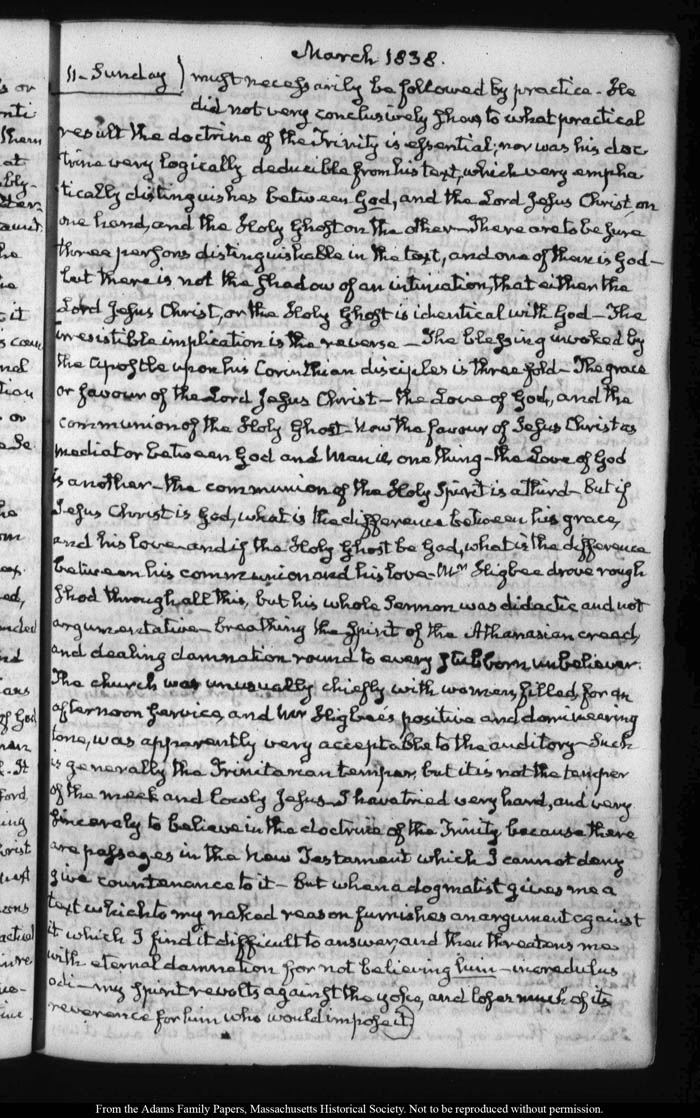 March 1838.
11 - Sunday) must necessarily be followed by practice - He
did not very conclusively show to what practical
result the doctrine of the Trinity is essential; nor was his doc
trine very logically deducible from his text, which very empha
tically distinguishes between God, and the Lord Jesus Christ, on
one hand, and the Holy Ghost on the other - There are to be sure
three persons distinguishable in the text, and one of them is God -
but there is not the shadow of an intimation, that either the
Lord Jesus Christ, or the Holy Ghost is identical with God - The
irresistible implication is the reverse - The blessing invoked by
the Apostle upon his Corinthian disciples is three fold - The grace
or favour of the Lord Jesus Christ - the Love of God, and the
communion of the Holy Ghost - Now the favour of Jesus Christ as
mediator between God and Man is one thing - the Love of God
is another - the communion of the Holy Spirit is a third - But if
Jesus Christ is God, what is the difference between his grace,
and his love - and if the Holy Ghost be God, what is the difference
between his communion and his love - Mr Higbee drove rough
shod through all this, but his whole Sermon was didactic and not
argumentative - breathing the Spirit of the Athanasian creed,
and dealing damnation round to every stubborn unbeliever.
The church was unusually chiefly with women, filled, for an
afternoon service, and Mr Higbee's positive and domineering
tone, was apparently very acceptable to the auditory - Such
is generally the Trinitarian temper, but it is not the temper
of the meek and lowly Jesus - I have tried very hard, and very
sincerely to believe in the doctrine of the Trinity because there
are passages in the New Testament which I cannot deny
give countenance to it - But when a dogmatist gives me a
text which to my naked reason furnishes an argument against
it which I find it difficult to answer, and then threatens me
with eternal damnation for not believing him - incredulus
odi - my Spirit revolts against the yoke, and loses much of its
reverence for him who would impose it)
From the Adams Family Papers, Massachusetts Historical Society. Not to be reproduced without permission.